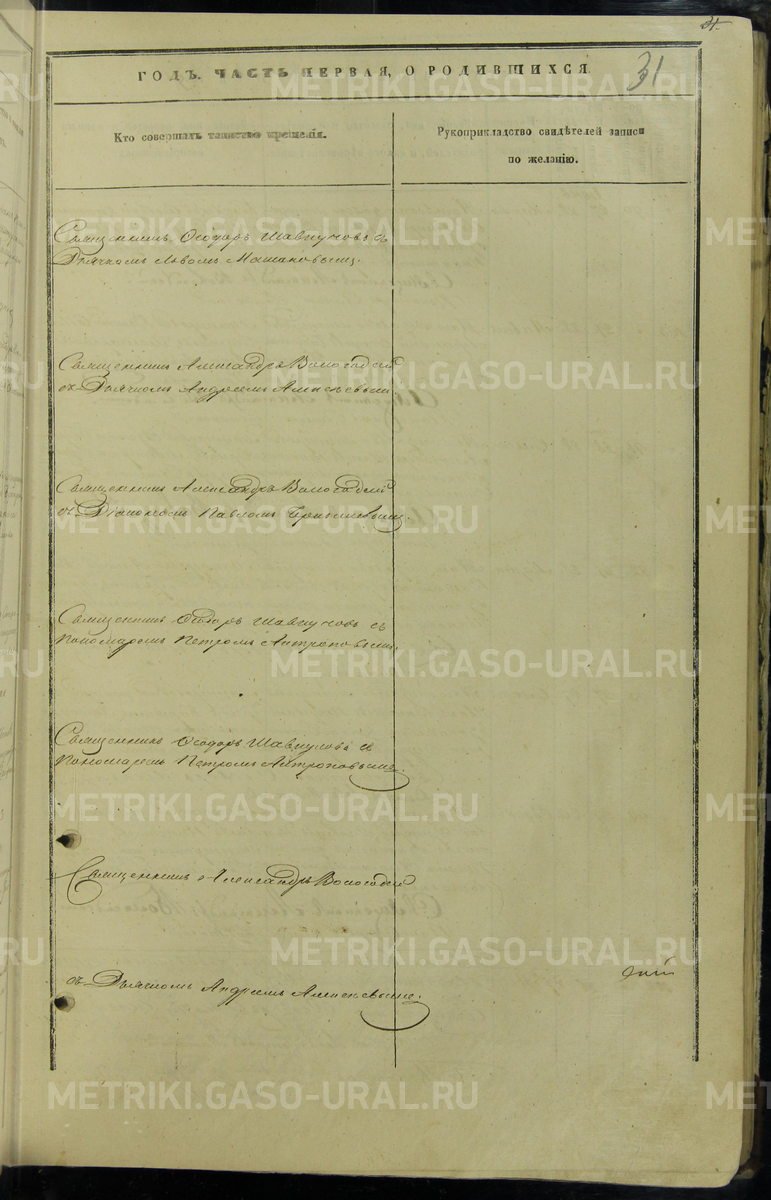 31
31
ГОДЪ. ЧАСТЬ ПЕРВАЯ, О РОДИВШИХСЯ.
Кто совершалъ таинство крещенія.
Рукоприкладство свидѣтелей записи
по желанію.
Священникъ Ѳеодоръ Шавкуновъ съ
Дьячкомъ Львомъ
Священникъ Александръ Вологодскій
съ Дьячкомъ Андреемъ Алексѣевымъ
Священникъ Александръ Вологодскій
съ Діакономъ Павломъ
Священникъ Ѳеодоръ Шавкуновъ съ
Пономаремъ Петромъ Антроповымъ.
Священникъ Ѳеодоръ Шавкуновъ съ
Пономаремъ Петромъ Антроповымъ.
Священникъ Александръ Вологодскій
съ Дьячкомъ Андреемъ Алексѣевымъ.
METRIKI.GASO-URAL.RU